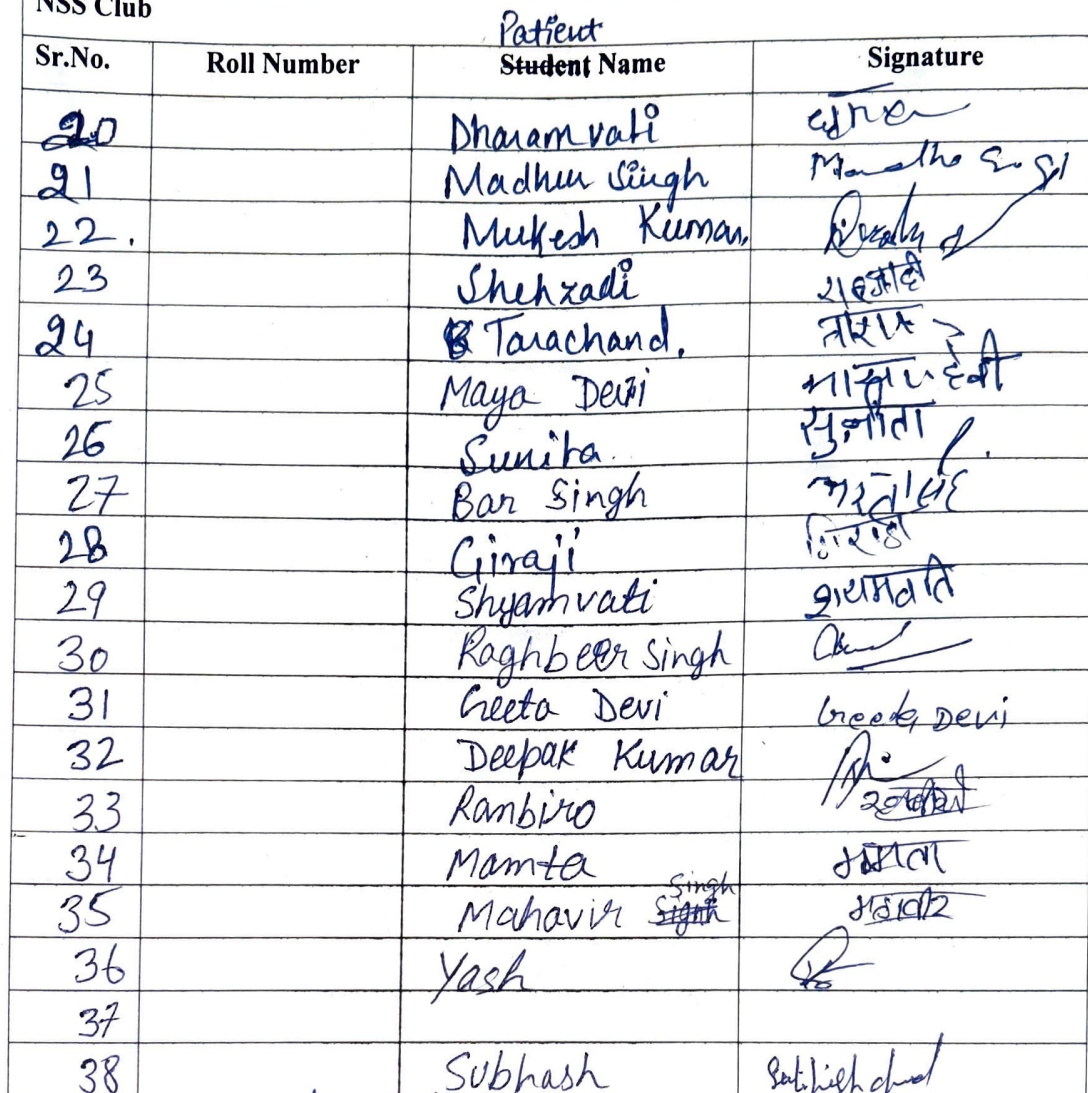 NSS Club
Patient
Sr.No. Roll Number Student Name Signature
20 Dharamvati
21 Madhu Singh
22. Mukesh Kumar.
23 Shehzadi शहजादी
24 Tarachand.
25 Maya Devi
26 Sunita. सुनीता
27 Bar Singh
28 Giraji
29 Shyamvati शयामवति
30 Raghbeer Singh
31 Geeta Devi Geeta Devi
32 Deepak Kumar
33 Ranbiro
34 Mamta ममता
Singh
35 Mahavir महावीर
36 Yash
37
38 Subhash